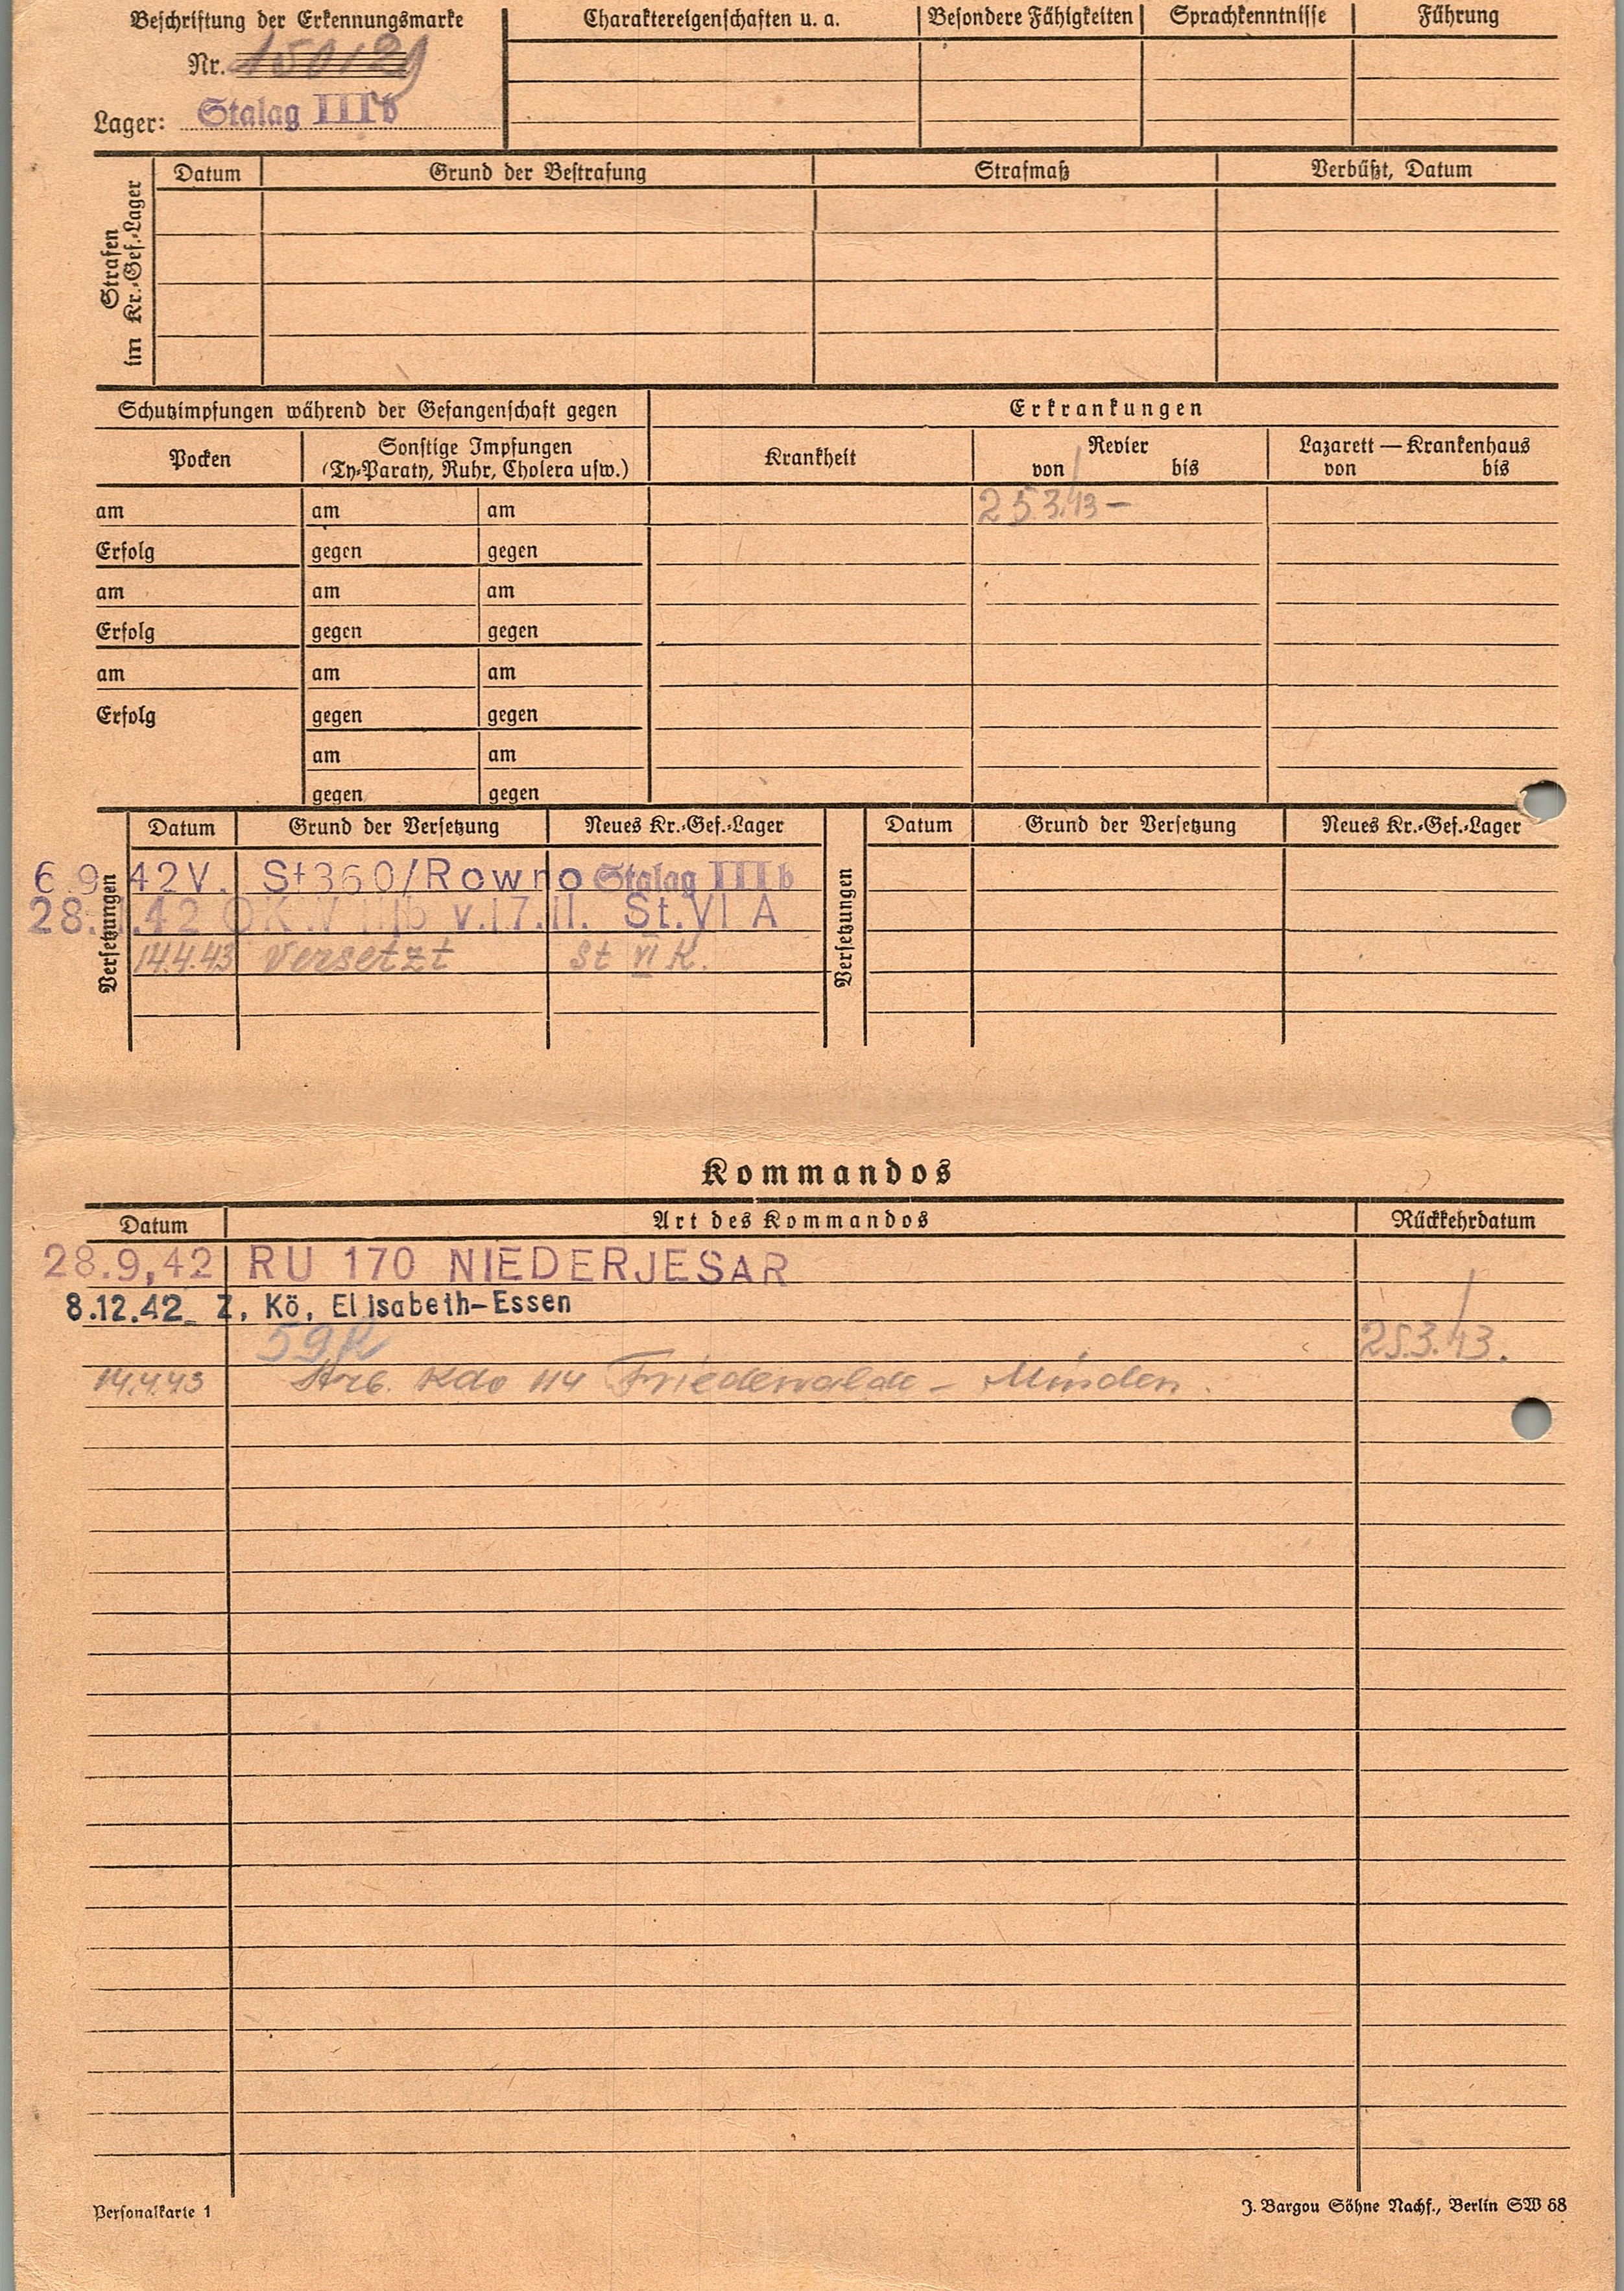 Beschriftung der Erkennungsmarke
Nr. 150129
Lager: Stalag IIIb
Charaktereigenschaften u. a. Besondere Fähigkeiten Sprachkenntnisse Führung
Strafen
im Kr.-Gef.-Lager
Datum Grund der Bestrafung Strafmaß Verbüßt, Datum
Schutzimpfungen während der Gefangenschaft gegen Erkrankungen
Pocken
Sonstige Impfungen
(Ty-Paraty, Ruhr, Cholera usw.)
Krankheit
Revier
von bis
Lazarett — Krankenhaus
von bis
am am am 25.3.43 –
Erfolg gegen gegen
am am am
Erfolg gegen gegen
am am am
Erfolg gegen gegen
am am
gegen gegen
Versetzungen
Datum Grund der Versetzung Neues Kr.-Gef.-Lager
6.9.42 V. St360/Rowno Stalag IIIb
28.11.42 OKW IIIb v.17.11. St.VI A
14.4.43 Versetzt St VI K.
Versetzungen
Datum Grund der Versetzung Neues Kr.-Gef.-Lager
Kommandos
Datum Art des Kommandos Rückkehrdatum
28.9,42 RU 170 NIEDERJESAR
8.12.42 Z, Kö, Elisabeth-Essen
59R 25.3.43.
14.4.43 Arb. Kdo 114 Friedewalde – Minden.
Personalkarte 1
J. Bargou Söhne Nachf., Berlin SW 68